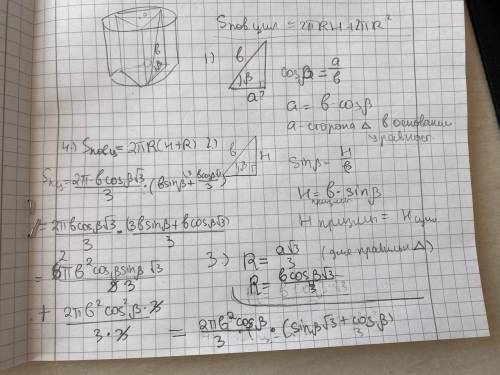 Sпов.цил = 2πRH + 2πR²
1.)
b
β
a?
cosβ = a/b
a = b·cosβ
a - сторона Δ в основании
b
β
H
sinβ = H/b
H призмы = b·sinβ
H призмы = H цил
3.) R = a√3/3 (для правильн Δ)
R = bcosβ√3/3
4.) Sповц = 2πR(H+R) 2.)
Sпц = 2π·bcosβ√3/3 · (bsinβ + bcosβ√3/3)
= 2πbcosβ√3/3 · (3bsinβ + bcosβ√3)/3
= 6πb²cosβsinβ√3/(3·3)
+ 2πb²cos²β·3/(3·3) = 2πb²cosβ/3 · (sinβ√3 + cosβ)